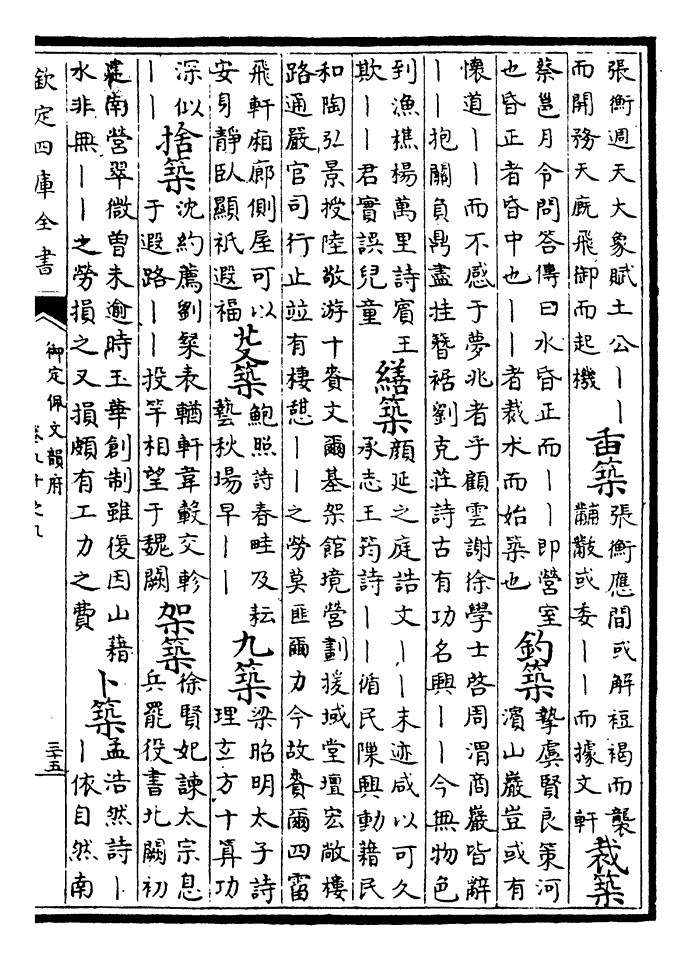 張衡週天大象賦土公丨丨
而開務天廐飛御而起機
臿築
張衡應間或解裋褐而襲
黼黻或委丨丨而據文軒
裁築
蔡邕月令問答傳曰水昏正而丨丨即營室
也昏正者昏中也丨丨者裁木而始築也
釣築
摯虞賢良策河
濱山巖豈或有
懷道丨丨而不感于夢兆者乎顧雲謝徐學士啓周渭商巖皆辭
丨丨抱關負鼎盡挂簪裾劉克莊詩古有功名興丨丨今無物色
到漁樵楊萬里詩賓王
欺丨丨君實誤兒童
繕築
顏延之庭誥文丨丨末迹咸以可久
承志王筠詩丨丨循民隟興動藉民
和陶弘景授陸敬游十賚文爾基架館境營劃援域堂壇宏敞棲
路通嚴官司行止竝有棲憇丨丨之勞莫匪爾力今故賚爾四霤
飛軒廂廊側屋可以
安身靜臥顯祇遐福
芟築
鮑照詩春畦及耘
藝秋場早丨丨
九築
梁昭明太子詩
理玄方十算功
深似
丨丨
捨築
沈約薦劉粲表輶軒韋轂交軫
于遐路丨丨投竿相望于魏闕
架築
徐賢妃諫太宗息
兵罷役書北闕初
建南營翠微曾未逾時玉華創制雖復因山藉
水非無丨丨之勞損之又損頗有工力之費
卜築
孟浩然詩丨
丨依自然南
欽定四庫全書
御定佩文韻府
卷九十之九
三十五